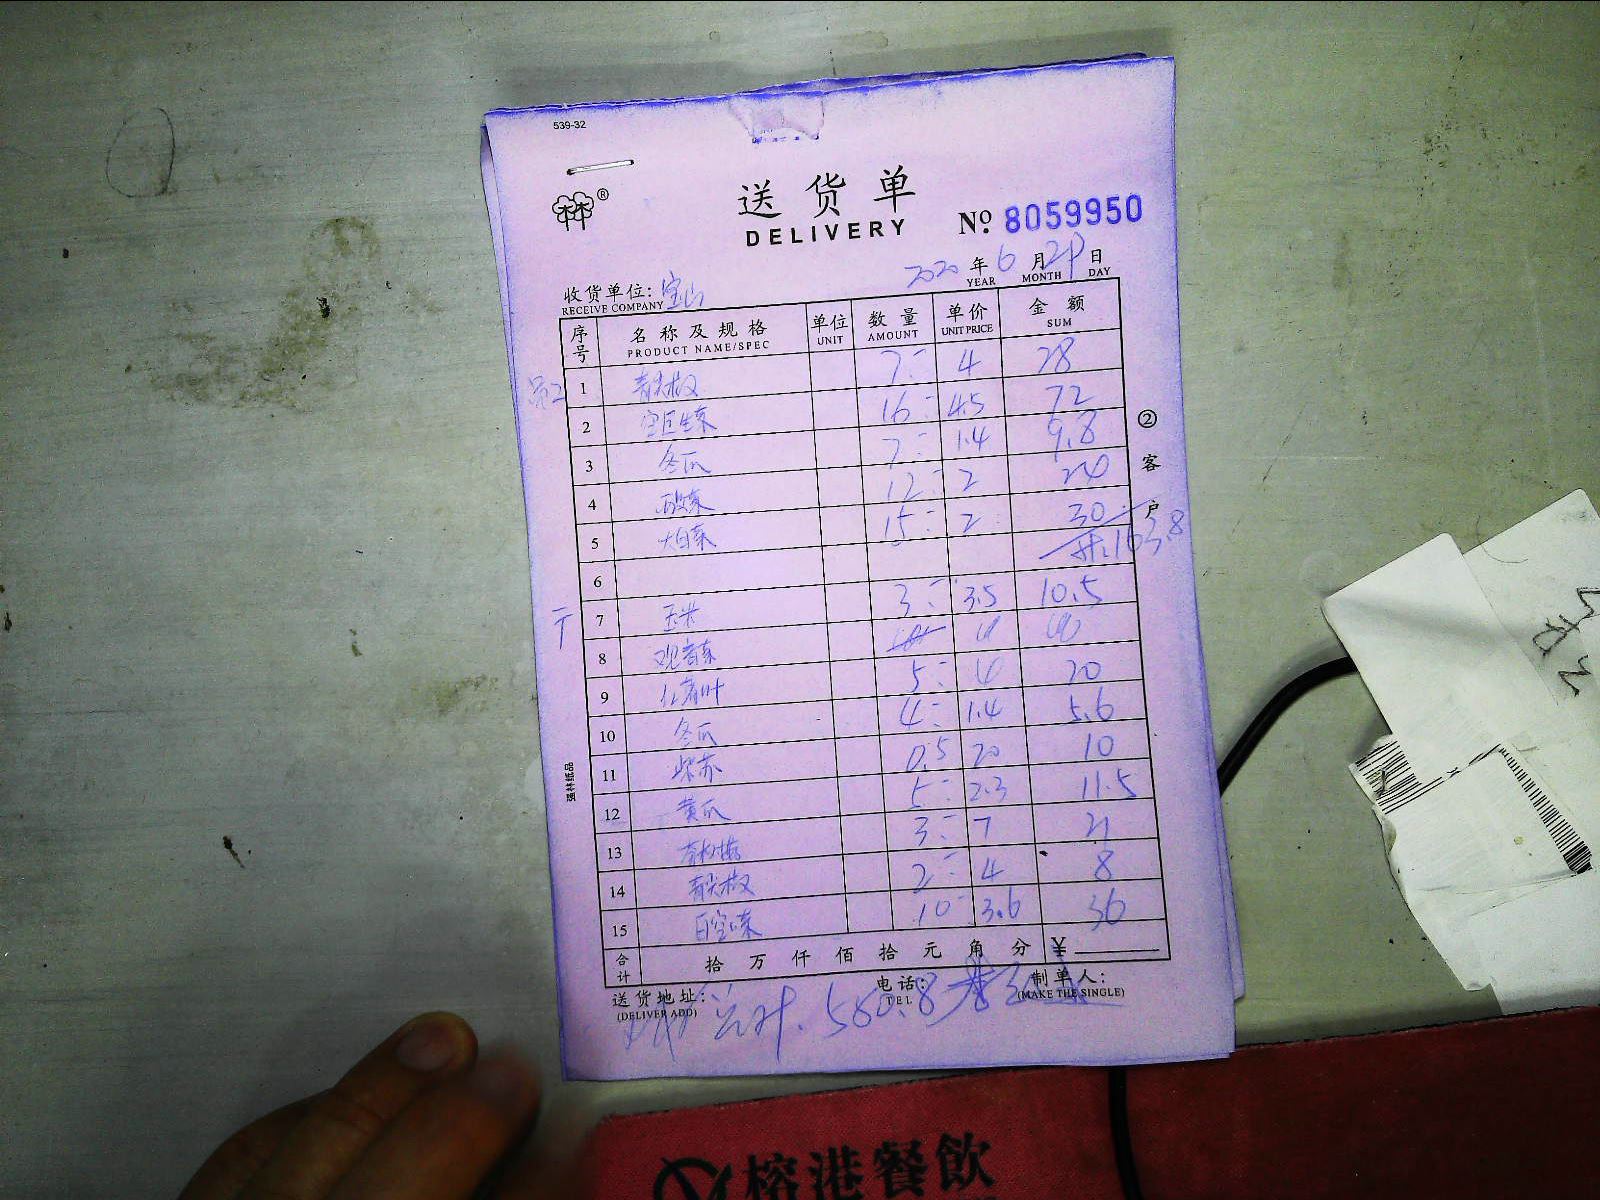 539-32
林®
送货单
DELIVERY
Nº 8059950
2020 年 6 月 21 日
YEAR MONTH DAY
收货单位: 宝山
RECEIVE COMPANY
序号 名称及规格 单位 数量 单价 金额
PRODUCT NAME/SPEC UNIT AMOUNT UNIT PRICE SUM
1 青尖椒 7 4 28
2 16 4.5 72
3 冬瓜 7 1.4 9.8
4 12 2 24
5 大白菜 15 2 30
共:163.8
6
7 玉米 3 3.5 10.5
8 观音菜
9 5 4 20
10 冬瓜 4 1.4 5.6
11 紫苏 0.5 20 10
12 黄瓜 5 2.3 11.5
13 3 7 21
14 青尖椒 2 4 8
15 白空菜 10 3.6 36
合计 拾 万 仟 佰 拾 元 角 分 ¥
送货地址: 电话: 制单人:
(DELIVER ADD) TEL (MAKE THE SINGLE)
总计. 560.8
②客户
强林纸品
榕港餐飲